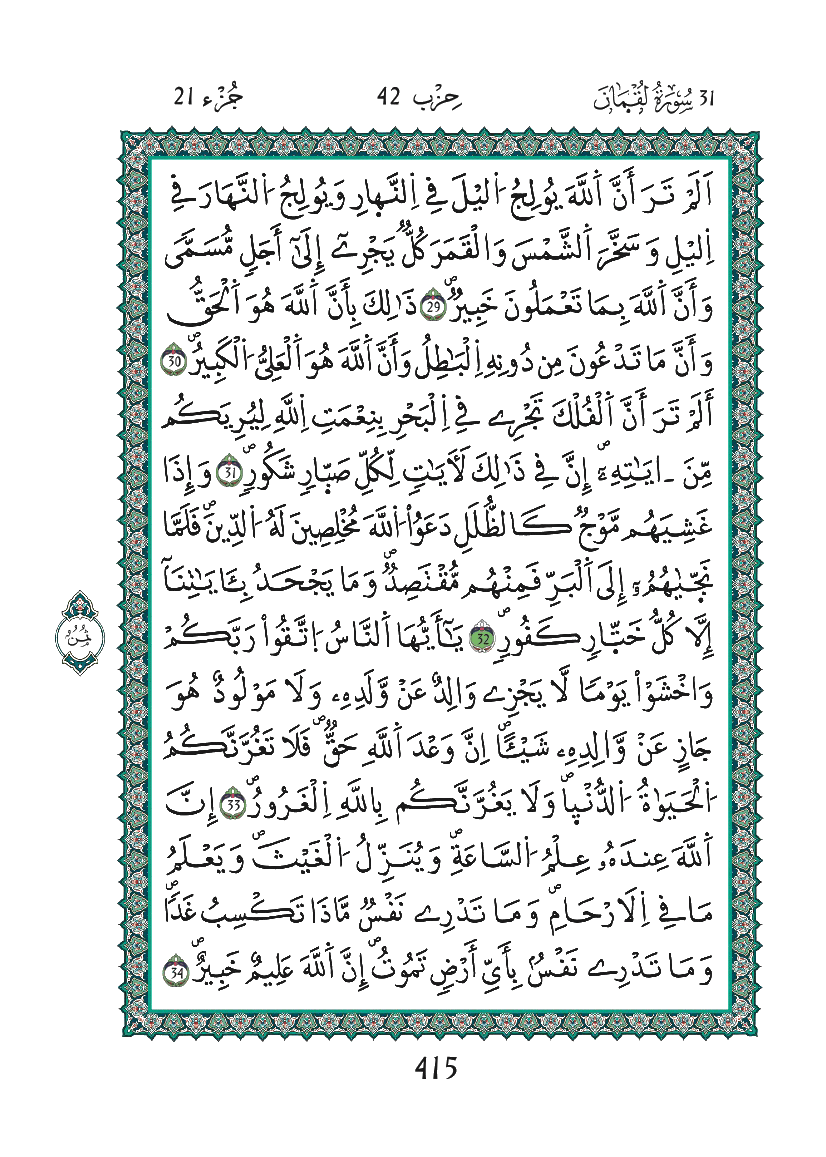 31 سُورَةُ لُقْمَٰنَ حِزْب 42 جُزْء 21
اَلَمْ تَرَ أَنَّ اَ۬للَّهَ يُولِجُ اُ۬ليْلَ فِے اِ۬لنَّهارِ وَيُولِجُ اُ۬لنَّهَارَ فِے
اِ۬ليْلِ وَسَخَّرَ اَ۬لشَّمْسَ وَالْقَمَرَ كُلٌّ يَجْرِےٓ إِلَيٰٓ أَجَلٖ مُّسَمّيٗ
وَأَنَّ اَ۬للَّهَ بِمَا تَعْمَلُونَ خَبِيرٌۖ 29 ذَٰلِكَ بِأَنَّ اَ۬للَّهَ هُوَ اَ۬لْحَقُّ
وَأَنَّ مَا تَدْعُونَ مِن دُونِهِ اِ۬لْبَٰطِلُ وَأَنَّ اَ۬للَّهَ هُوَ اَ۬لْعَلِيُّ اُ۬لْكَبِيرُۖ 30
أَلَمْ تَرَ أَنَّ اَ۬لْفُلْكَ تَجْرِے فِے اِ۬لْبَحْرِ بِنِعْمَتِ اِ۬للَّهِ لِيُرِيَكُم
مِّنَ ـ ايَٰتِهِۦٓۖ إِنَّ فِے ذَٰلِكَ لَأٓيَٰتٖ لِّكُلِّ صَبّ۪ارٖ شَكُورٖۖ 31 وَإِذَا
غَشِيَهُم مَّوْجٞ كَالظُّلَلِ دَعَوُاْ اُ۬للَّهَ مُخْلِصِينَ لَهُ اُ۬لدِّينَۖ فَلَمَّا
نَجّ۪يٰهُمُۥٓ إِلَي اَ۬لْبَرِّ فَمِنْهُم مُّقْتَصِدٞۖ وَمَا يَجْحَدُ بِـَٔايَٰتِنَآ
إِلَّا كُلُّ خَتّ۪ارٖ كَفُورٖۖ 32 يَٰٓأَيُّهَا اَ۬لنَّاسُ اُ۪تَّقُواْ رَبَّكُمْ
وَاخْشَوْاْ يَوْماٗ لَّا يَجْزِے وَالِدٌ عَنْ وَّلَدِهِۦ وَلَا مَوْلُودٌ هُوَ
جَازٍ عَنْ وَّالِدِهِۦ شَيْـٔاًۖ اِنَّ وَعْدَ اَ۬للَّهِ حَقّٞۖ فَلَا تَغُرَّنَّكُمُ
اُ۬لْحَيَوٰةُ اُ۬لدُّنْي۪اۖ وَلَا يَغُرَّنَّكُم بِاللَّهِ اِ۬لْغَرُورُۖ 33 إِنَّ
اَ۬للَّهَ عِندَهُۥ عِلْمُ اُ۬لسَّاعَةِۖ وَيُنَزِّلُ اُ۬لْغَيْثَۖ وَيَعْلَمُ
مَا فِے اِ۬لَارْحَامِۖ وَمَا تَدْرِے نَفْسٞ مَّاذَا تَكْسِبُ غَداٗۖ
وَمَا تَدْرِے نَفْسُۢ بِأَيِّ أَرْضٖ تَمُوتُۖ إِنَّ اَ۬للَّهَ عَلِيمٌ خَبِيرٌۖ 34
ثُمُن
415